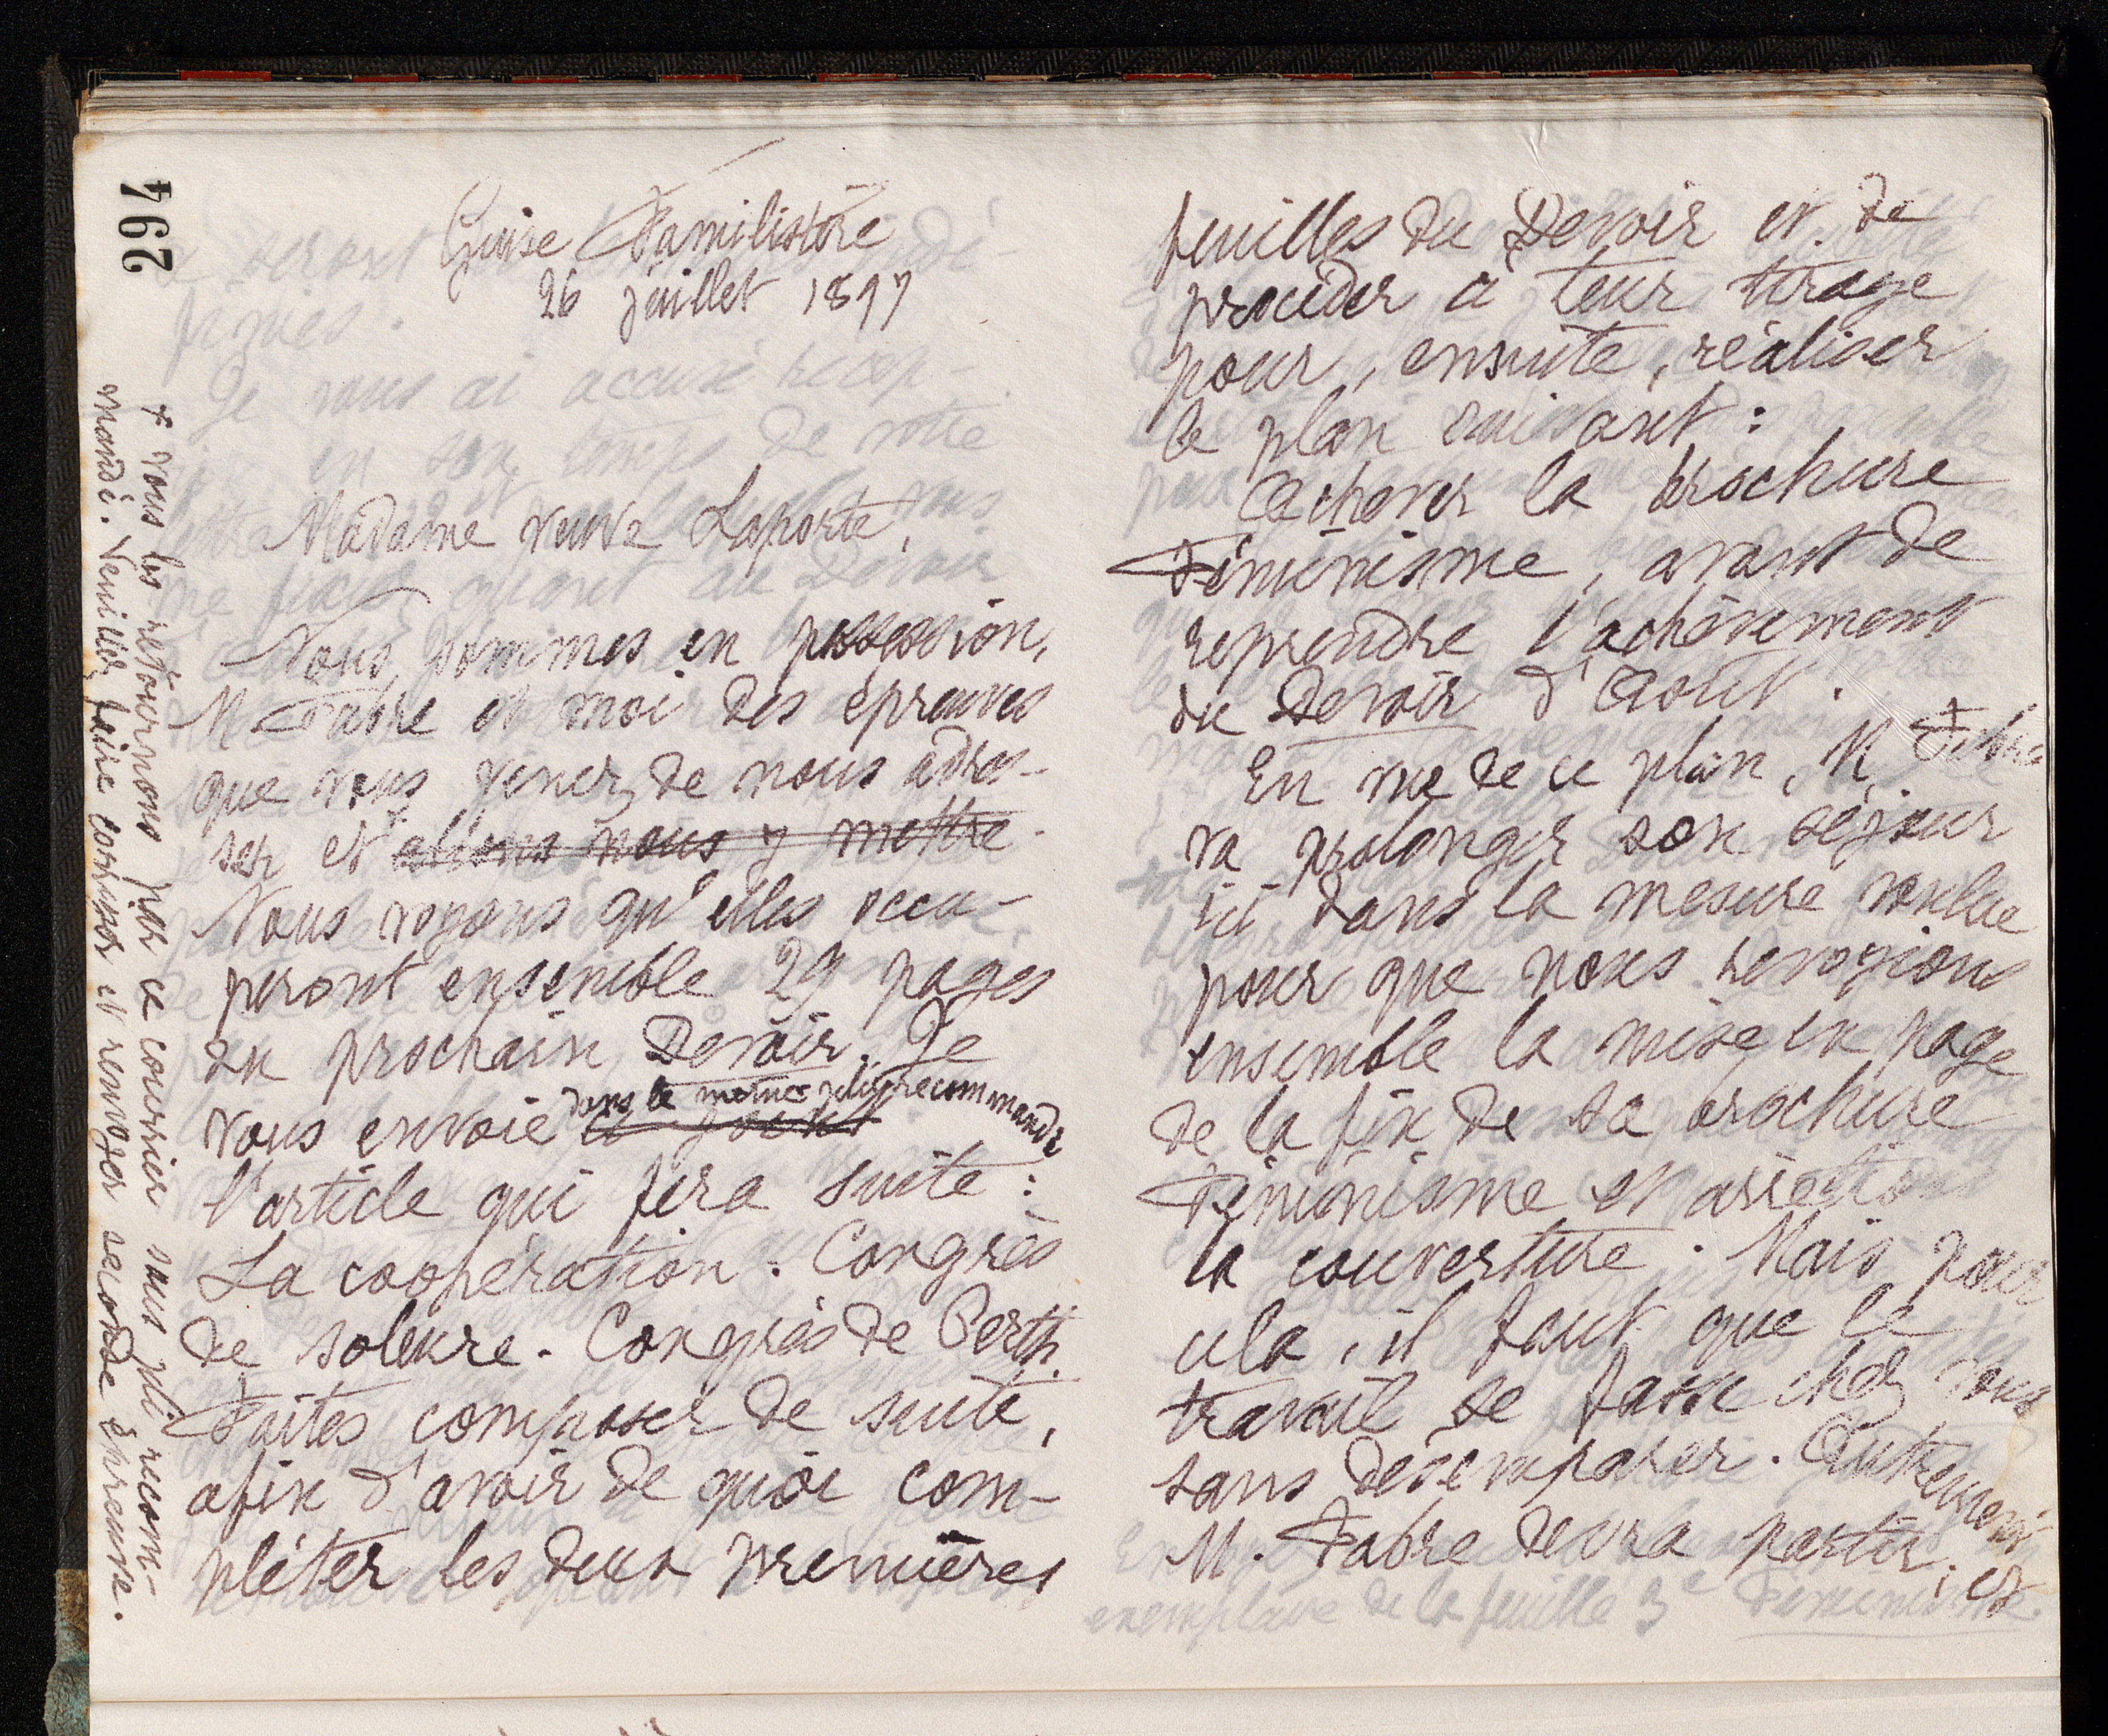 294
Guise Familistère
26 juillet 1897
Madame veuve Laporte,
Nous sommes en possession,
M. Fabre et moi des épreuves
que vous venez de nous adres-
ser et allons nous y mettre
Nous voyons qu'elles occu-
peront ensemble 29 pages
du prochain Devoir. Je
vous envoie ci joint dans le même pli recommandé
l'article qui fera suite :
La coopération. Congrès
de Soleure. Congrès de Perth.
Faites composer de suite,
afin d'avoir de quoi com-
pléter les deux premières
+ vous les retournons par ce courrier sous pli recom-
mandé. Veuillez faire corriger et renvoyer seconde épreuve.
feuilles du Devoir et de
procéder à leur tirage
pour, ensuite, réaliser
le plan suivant :
Achever la brochure
Féminisme, avant de
reprendre l'achèvement
du Devoir d'Août.
En vue de ce plan, M. Fabre
va prolonger son séjour
ici dans la mesure voulue
pour que nous revoyions
ensemble la mise en page
de la fin de sa brochure
Féminisme et arrêtions
la couverture. Mais pour
cela, il faut que le
travail se fasse chez vous
sans désemparer. Autrement
M. Fabre devra partir ; et